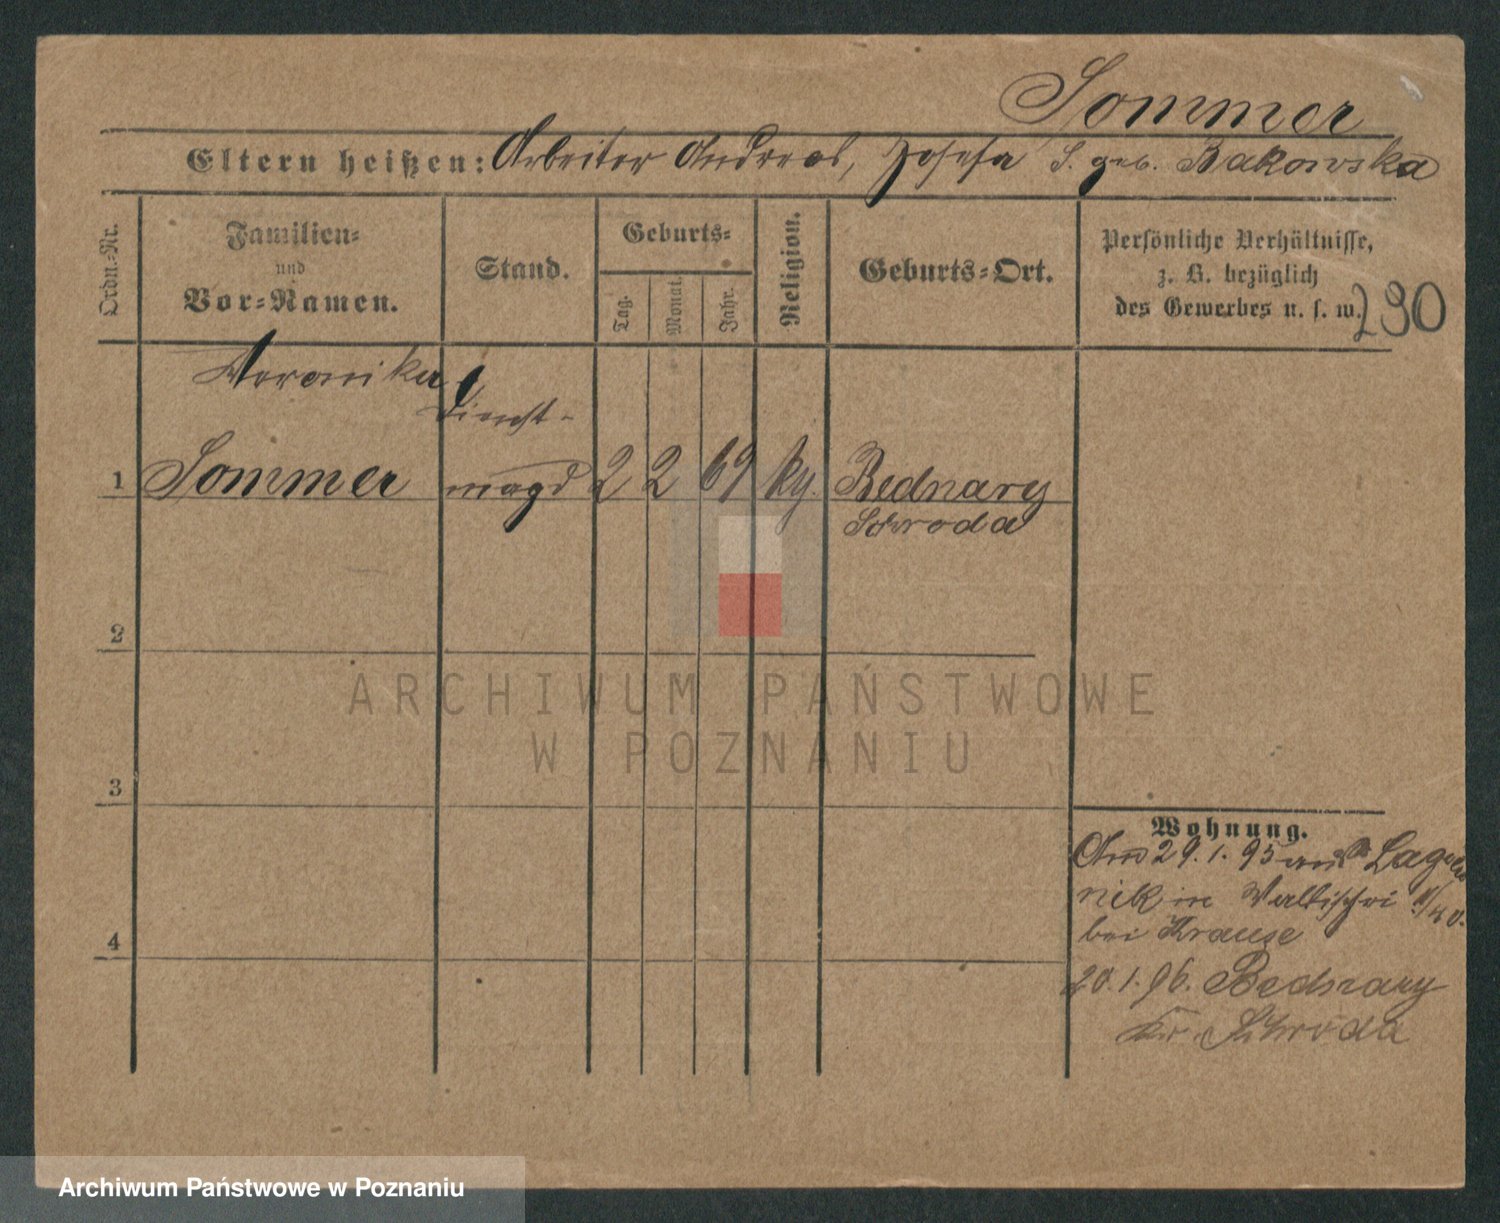 Sommer
Eltern heißen: Arbeiter Andreas, Josefa S. geb. Bakowska
Ordn.-Nr.
Familien-
und
Vor-Namen.
Stand.
Geburts-
Tag.
Monat.
Jahr.
Religion.
Geburts-Ort.
Persönliche Verhältnisse,
z. B. bezüglich
des Gewerbes u. s. w.
290
Veronika
Dienst-
1 Sommer magd 2 2 69 kg. Bednary
Schroda
2
ARCHIWUM PAŃSTWOWE
W POZNANIU
3
Wohnung.
Am 29.1.95 aus
nik in Wallischei
bei Krause
4
20.1.96. Bednary
Kr. Schroda
Archiwum Państwowe w Poznaniu